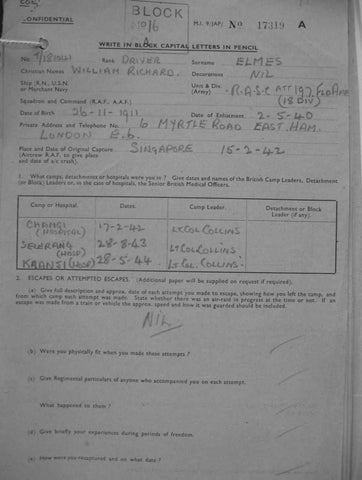 CONFIDENTIAL
BLOCK
M.I. 9/JAP/ No 17319 A
WRITE IN BLOCK CAPITAL LETTERS IN PENCIL
No. Rank DRIVER Surname ELMES
Christian Names WILLIAM RICHARD. Decorations NIL
Ship (R.N., U.S.N. or Merchant Navy Unit & Div. (Army) R.A.S.C ATT 197 FLD AMB
(18 DIV)
Squadron and Command (R.A.F., A.A.F.)
Date of Birth 26-11-1911 Date of Enlistment 2-5-40
Private Address and Telephone No. 6 MYRTLE ROAD EAST HAM.
LONDON E.6.
Place and Date of Original Capture SINGAPORE 15-2-42
(Aircrew R.A.F. to give place
and date of a/c crash).
1. What camps, detachments or hospitals were you in? Give dates and names of the British Camp Leaders, Detachment
(or Block) Leaders or, in the case of hospitals, the Senior British Medical Officers.
Camp or Hospital. Dates. Camp Leader. Detachment or Block Leader (if any).
CHANGI (HOSPITAL) 17-2-42 LT COL COLLINS
SELERANG (HOSP) 28-8-43 LT COL COLLINS.
KRANJI (HOSP) 28-5-44 LT COL. COLLINS.
2. ESCAPES OR ATTEMPTED ESCAPES. (Additional paper will be supplied on request if required).
(a) Give full description and approx. date of each attempt you made to escape, showing how you left the camp, and
from which camp each attempt was made. State whether there was an air-raid in progress at the time or not. If an
escape was made from a train or vehicle the approx. speed and how it was guarded should be included.
NIL
(b) Were you physically fit when you made these attempts?
(c) Give Regimental particulars of anyone who accompanied you on each attempt.
What happened to them?
(d) Give briefly your experiences during periods of freedom.
(e) How were you recaptured and on what date?